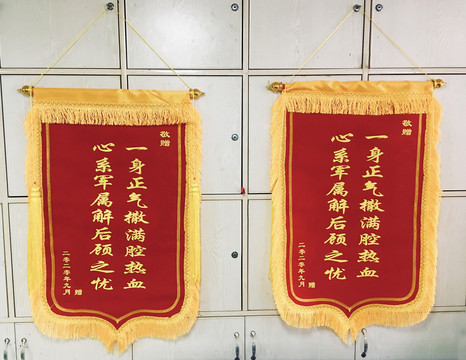 敬赠
一身正气撒满腔热血
心系军属解后顾之忧
二零二零年九月 赠
敬赠
一身正气撒满腔热血
心系军属解后顾之忧
二零二零年九月 赠